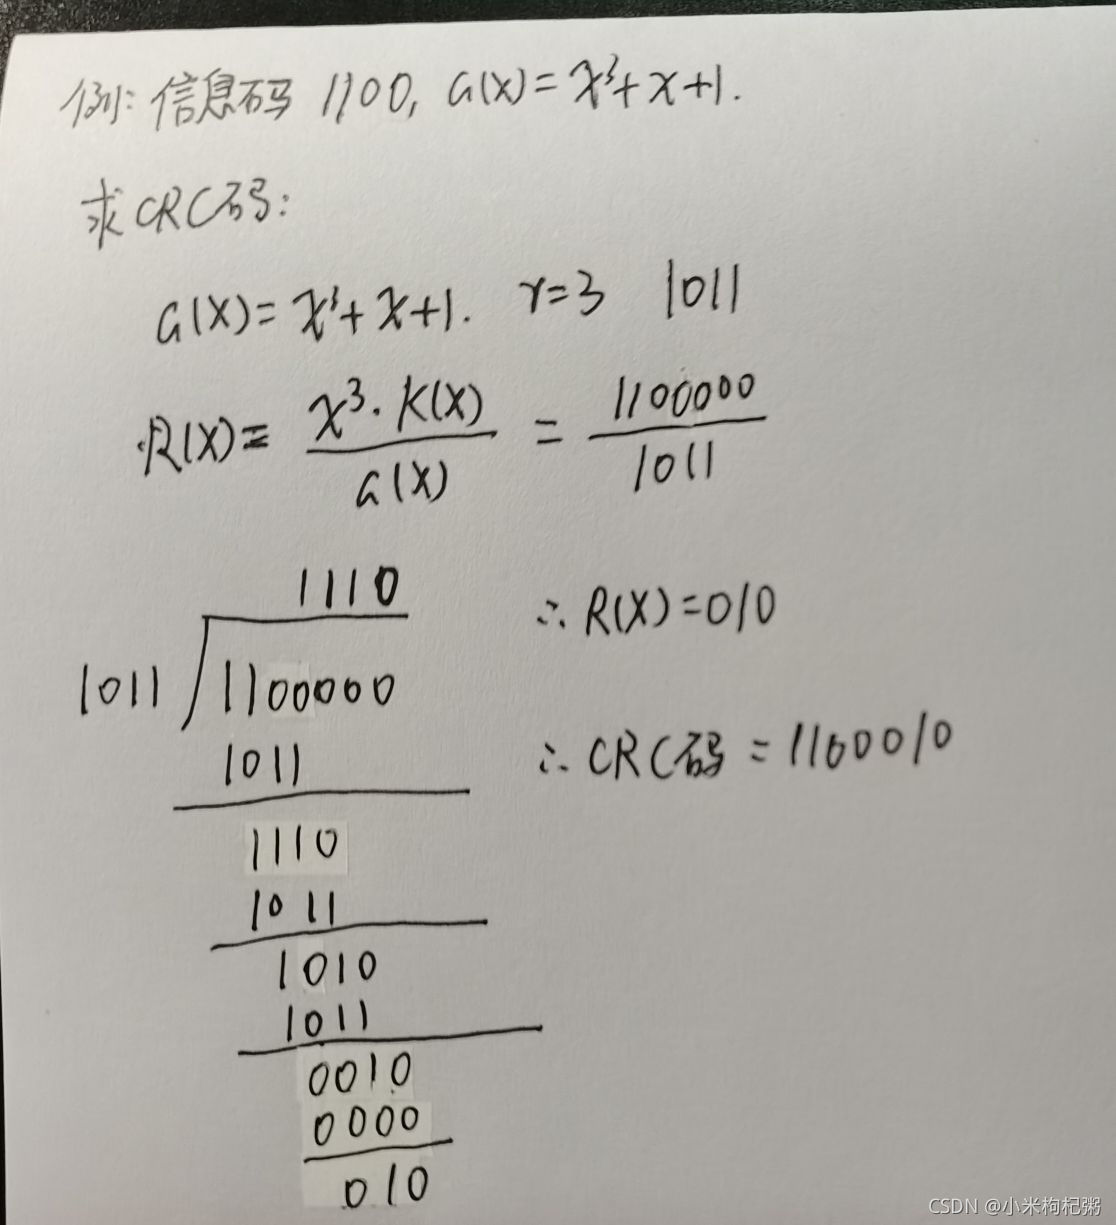 例: 信息码 1100, G(X)=x³+x+1.
求CRC码:
G(X)=x³+x+1. r=3 1011
R(X)= x³·K(X) / G(X) = 1100000 / 1011
1110
1011 1100000
1011
1110
1011
1010
1011
0010
0000
010
∴ R(X)=010
∴ CRC码=1100010
CSDN @小米枸杞粥